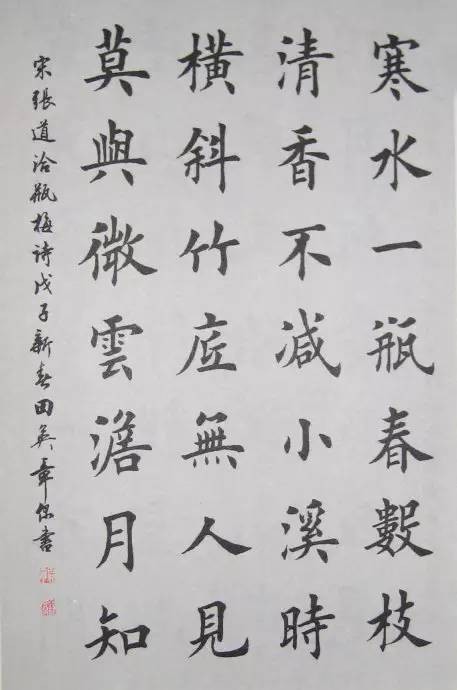 寒水一瓶春數枝
清香不減小溪時
橫斜竹底無人見
莫與微雲澹月知
宋張道洽瓶梅詩戊子新春田英章書